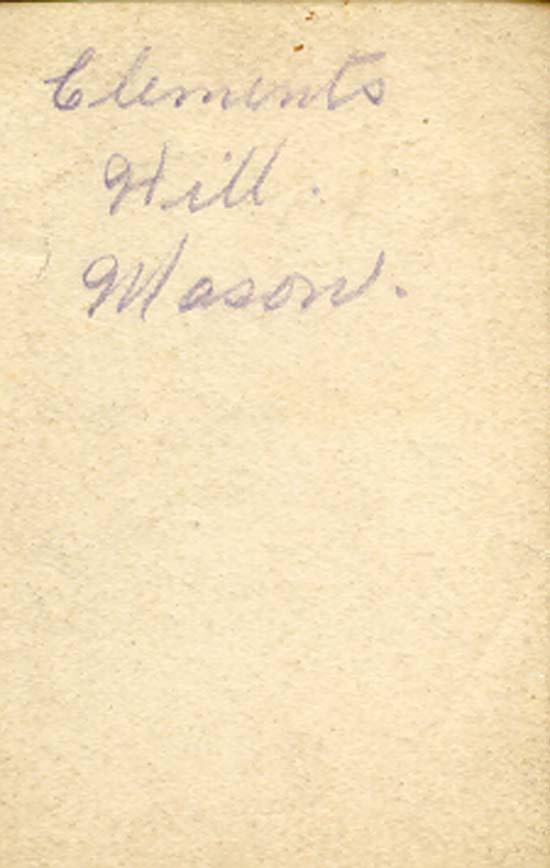 Clements
Hill.
Mason.